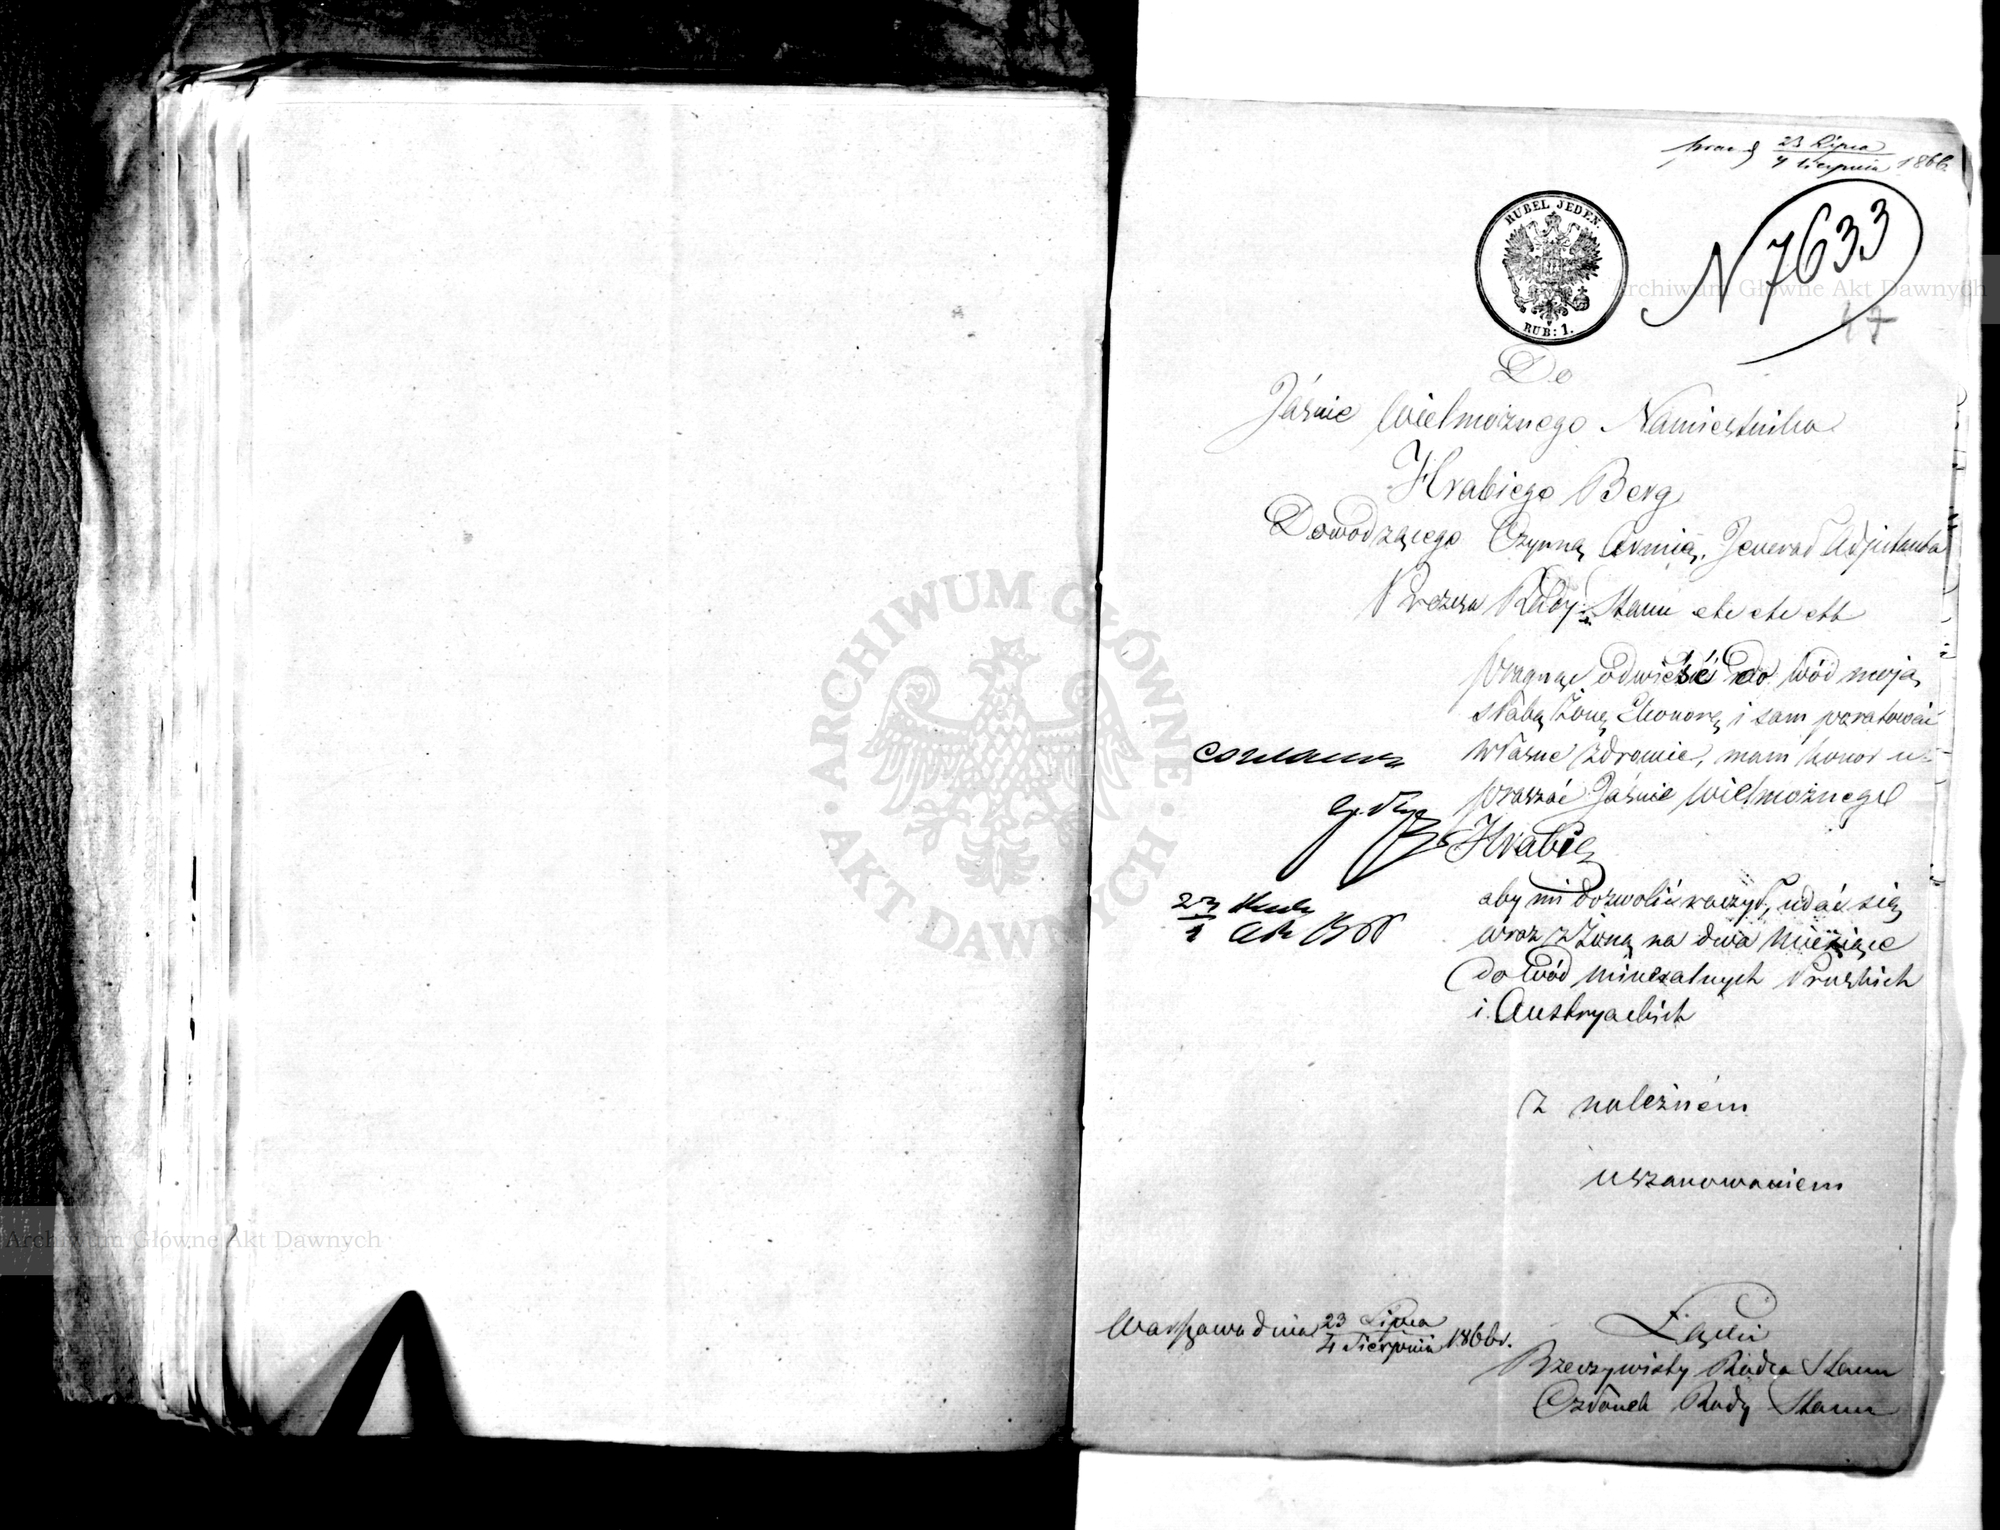 23 Lipca
4 Sierpnia 1866
RUBEL JEDEN
RUB: 1.
N 7633
Archiwum Główne Akt Dawnych
17
Do
Jaśnie Wielmożnego Namiestnika
Hrabiego Berg
Dowodzącego Czynną Armią, Jenerał Adjutanta
Prezesa Rady Stanu etc etc etc
Pragnąc odwieść do Wód moją
słabą Żonę Eleonorę i sam poratować
własne zdrowie, mam honor u-
praszać Jaśnie Wielmożnego
Hrabię
aby mi dozwolić raczył, udać się
wraz z Żoną na dwa miesiące
do Wód Mineralnych Pruskich
i Austryackich
Z należném
uszanowaniem
Warszawa dnia 23 Lipca
4 Sierpnia 1866 r.
Rzeczywisty Radca Stanu
Członek Rady Stanu
ARCHIWUM GŁÓWNE
AKT DAWNYCH
Archiwum Główne Akt Dawnych